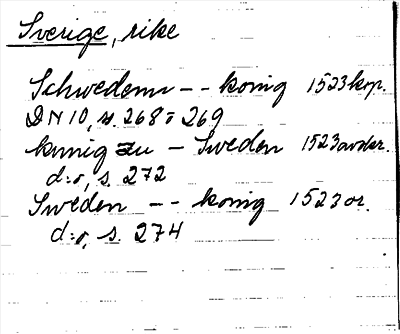 Sverige, rike
Schwedenn -- konig 1523 kop.
DN 10, s. 268-269
kunig zu - Sweden 1523 avskr.
d:o, s. 272
Sweden -- konig 1523 or.
d:o, s. 274